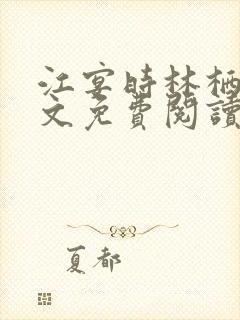 江宴時林栖
文免費閱讀
夏都